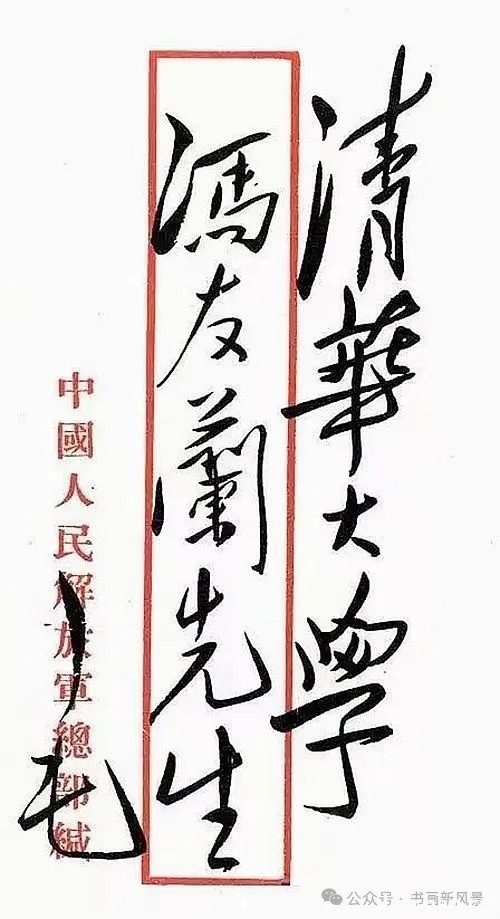 清華大學
馮友蘭先生
中國人民解放軍總部緘
毛
公众号·书画新风景